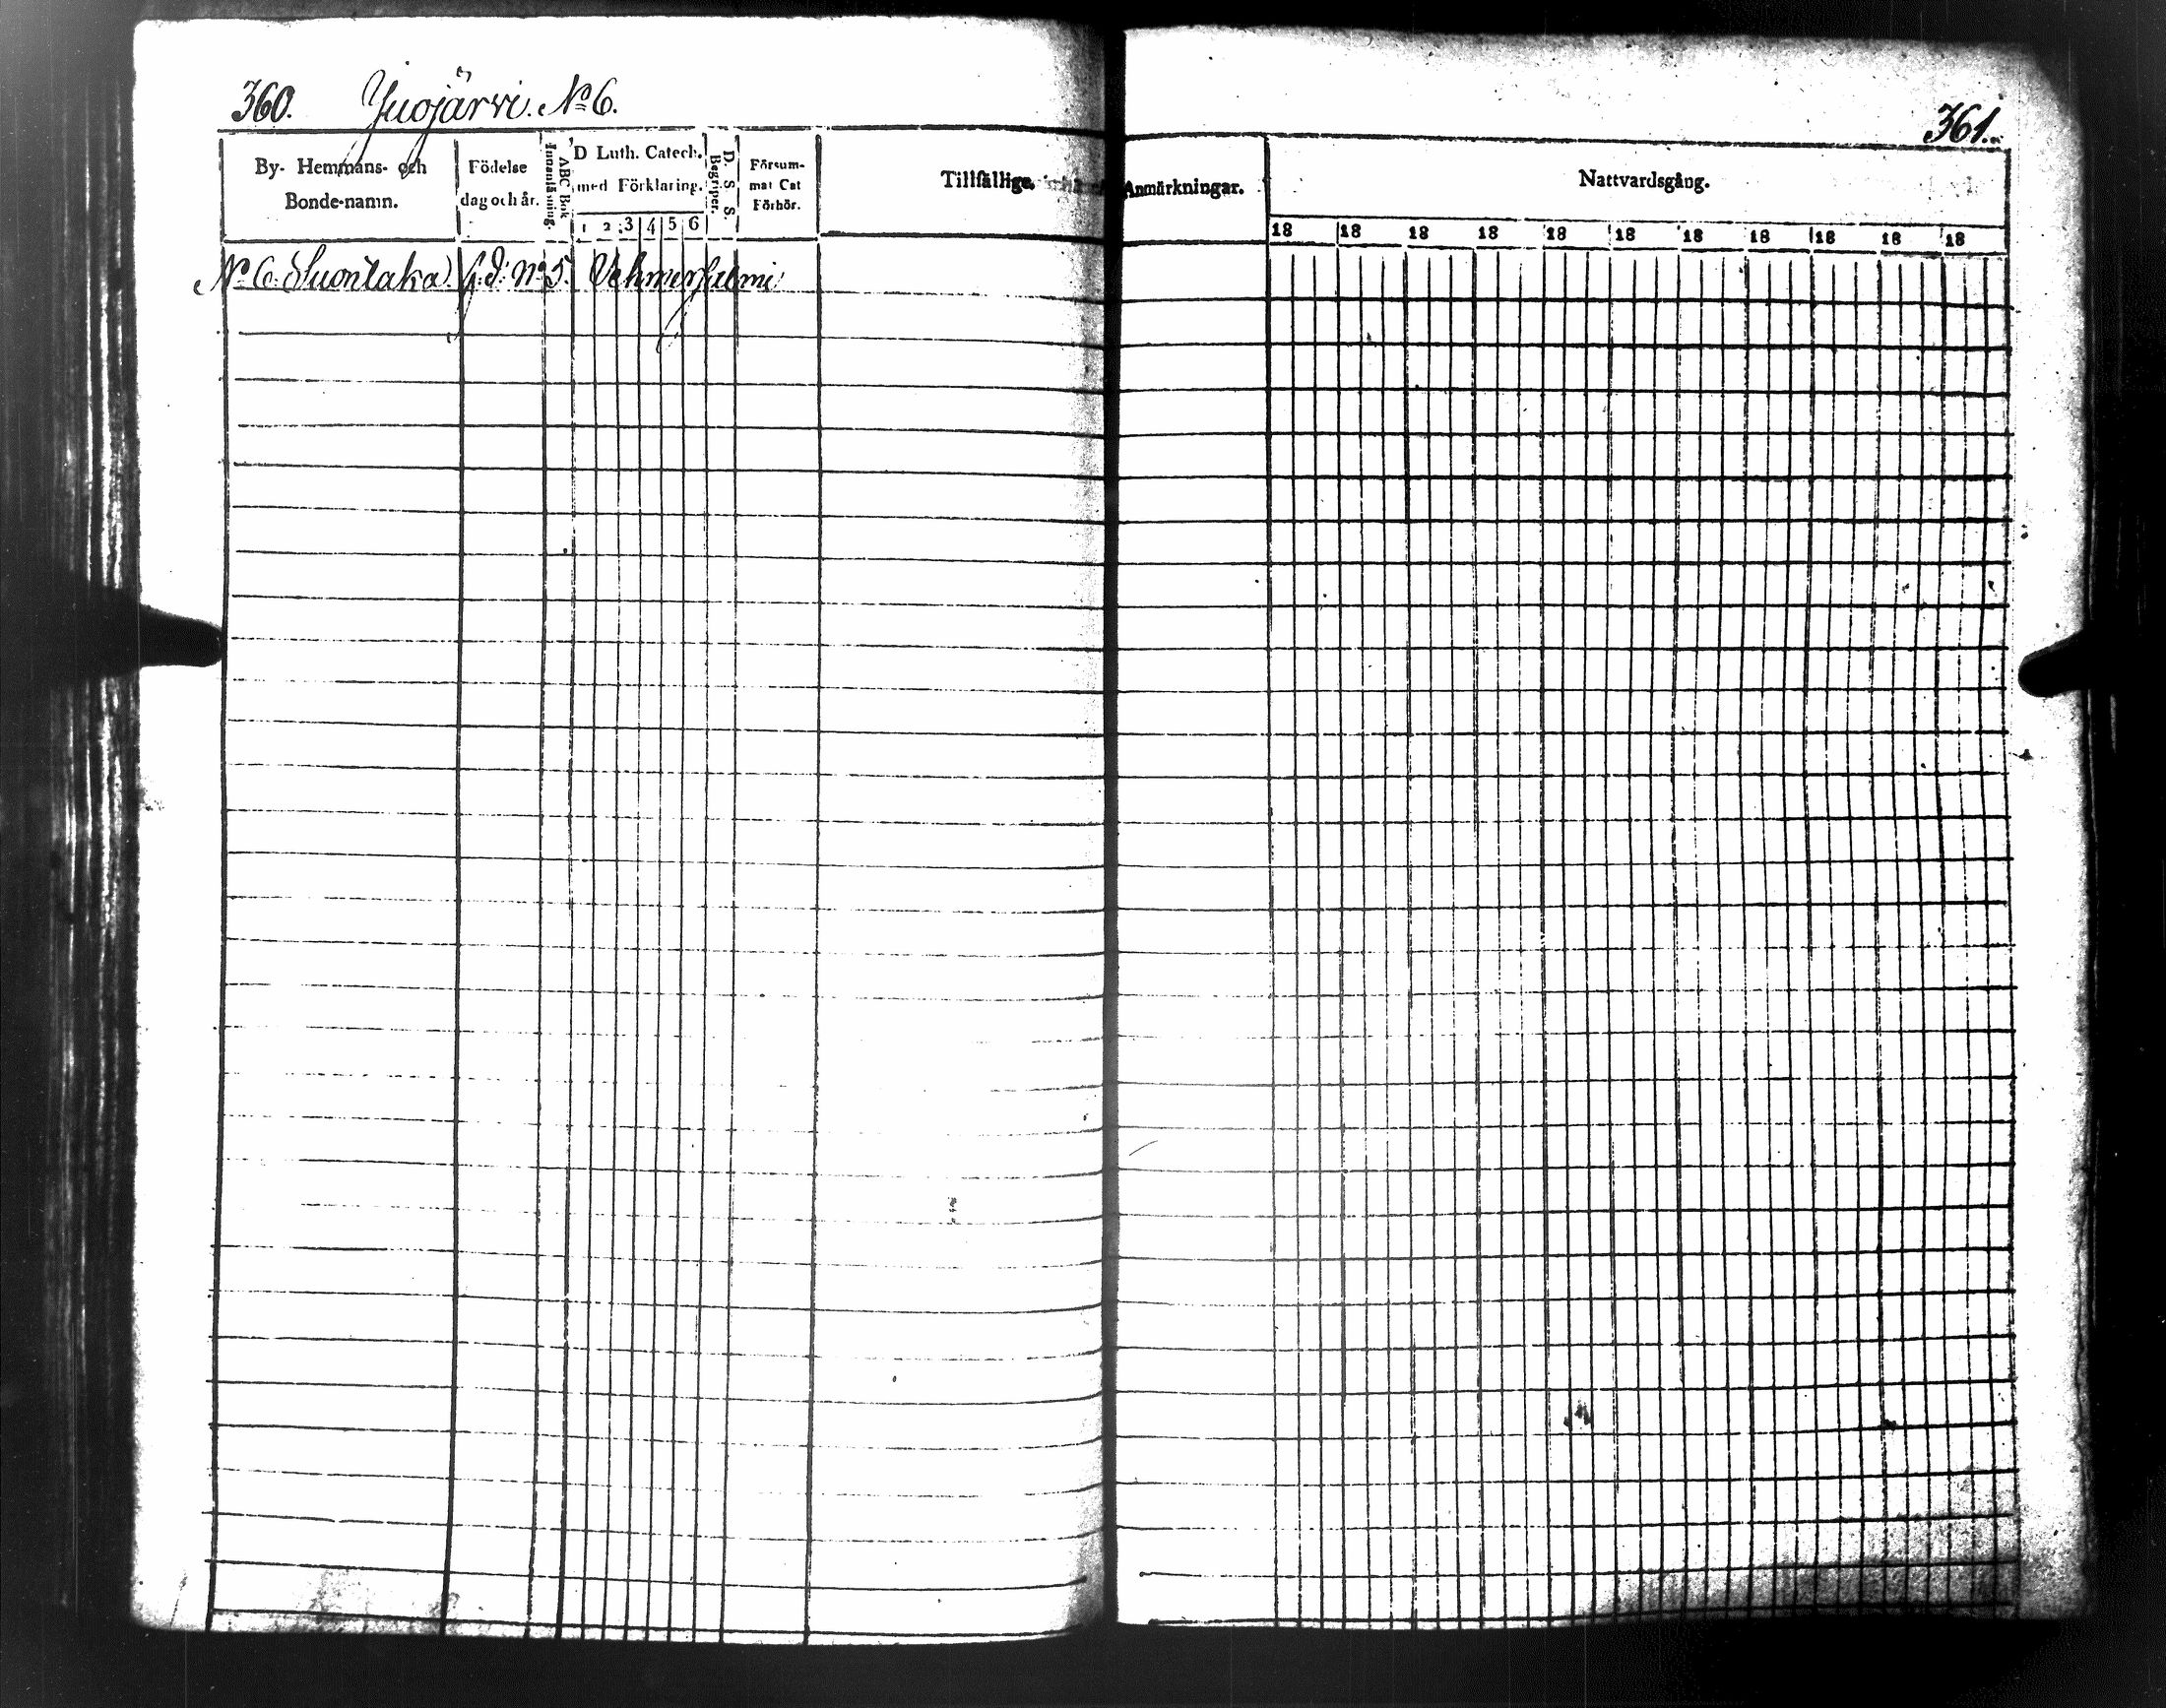 360. Juojärvi. No 6.
361.
By- Hemmans- och
Bonde-namn.
Födelse
dag och år.
ABC Bok
Innanläsning.
D Luth. Catech.
med Förklaring.
1 2 3 4 5 6
D. S. S.
Begriper.
Försum-
mat Cat
Förhör.
Tillfällige
Anmärkningar.
Nattvardsgång.
18 18 18 18 18 18 18 18 18 18 18
No 6. Suontaka No 5. Vehmersalmi